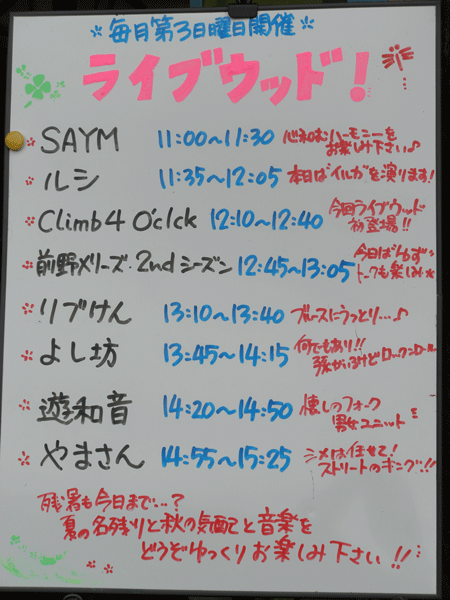 *毎月第3日曜日開催*
ライブウッド!
SAYM 11:00~11:30 心和むハーモニーをお楽しみ下さい♪
ルシ 11:35~12:05 本日は"イルカ"を演ります!
Climb4 O'clck 12:10~12:40 今回ライブウッド初登場!!
前野メリーズ 2ndシーズン 12:45~13:05 今日は トークも楽しみ
リブけん 13:10~13:40 ブルースにうっとり…♪
よし坊 13:45~14:15 何でもあり!! ロックンロール
遊和音 14:20~14:50 懐しのフォーク男女ユニット
やまさん 14:55~15:25 シメは任せて!ストリートのキング!!
残暑も今日まで…?
夏の名残りと秋の気配と音楽を
どうぞゆっくりお楽しみ下さい!!